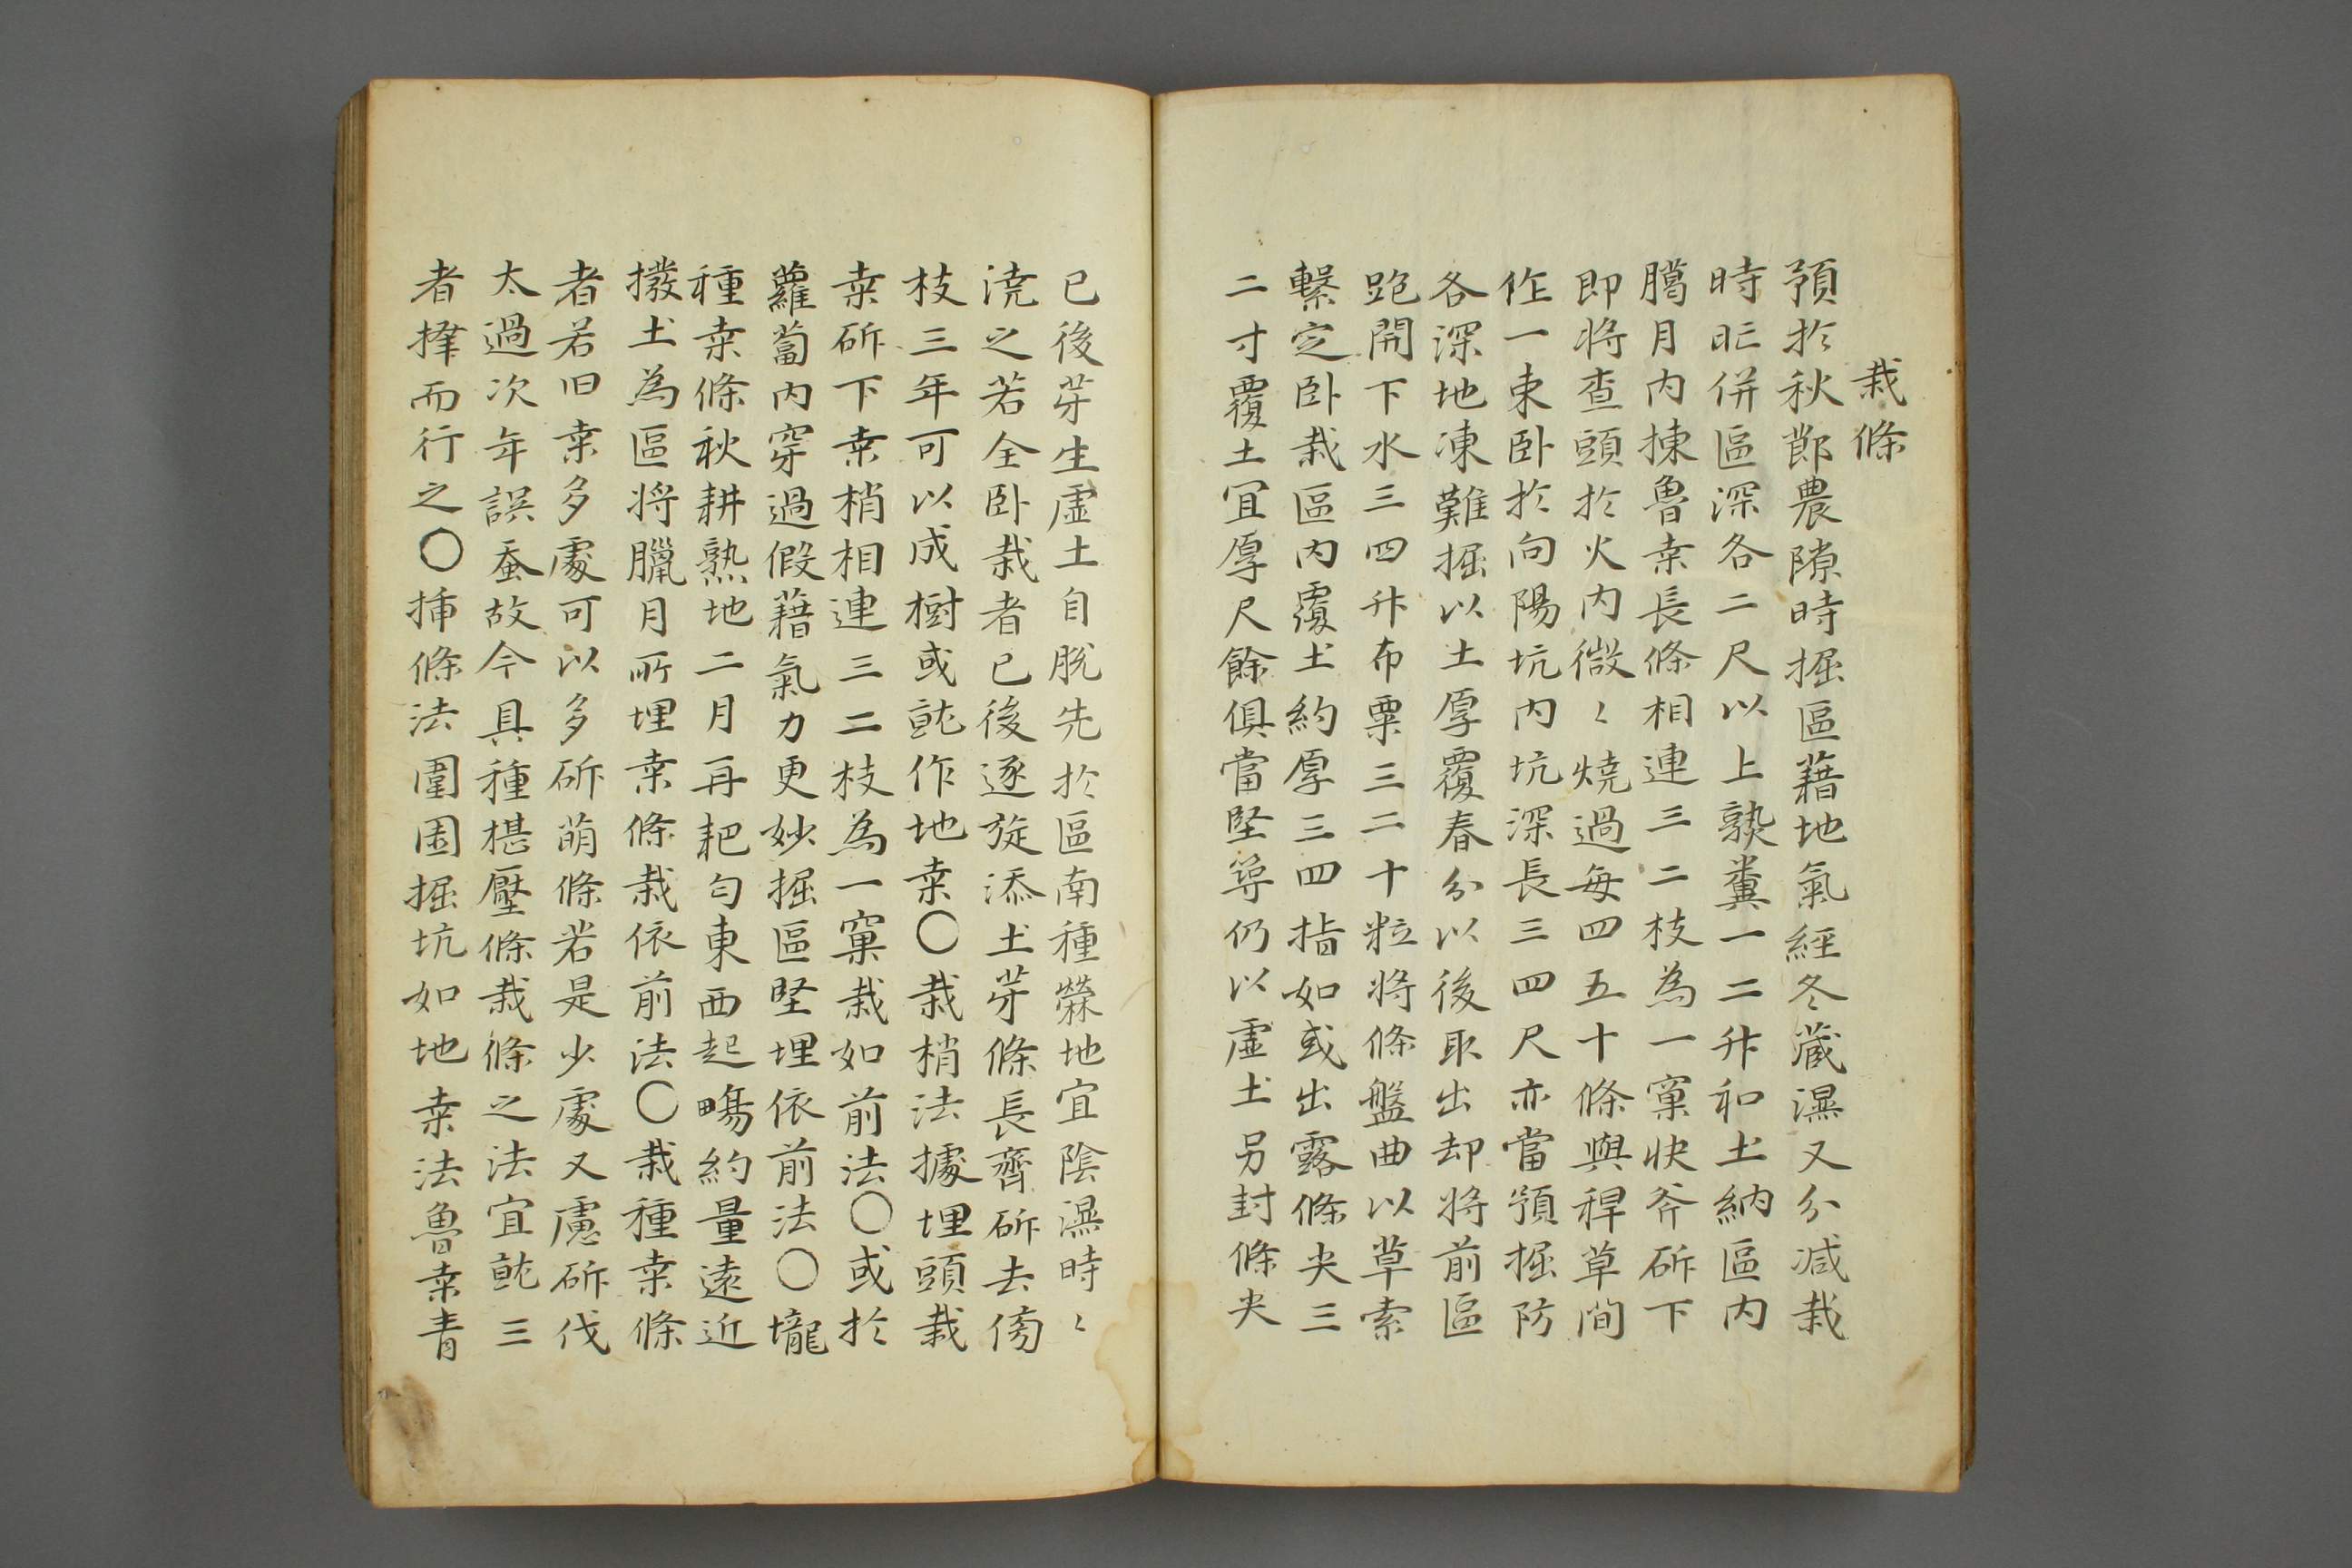 栽條
預於秋節農隙時掘區藉地氣經冬藏濕又分减栽
時㫁併區深各二尺以上熟糞一二升和土納區内
臈月内揀魯桒長條相連三二枝為一窠快斧斫下
即将查頭於火内微〻燒過每四五十條與稈草間
作一束卧於向陽坑内坑深長三四尺亦當預掘防
各深地凍難掘以土厚覆春分以後取出却将前區
跑開下水三四升布粟三二十粒将條盤曲以草索
繫定卧栽區内覆土約厚三四指如或出露條尖三
二寸覆土宜厚尺餘俱當堅築仍以虛土另封條尖
已後芽生虛土自脫先於區南種檾地宜陰濕時〻
澆之若全卧栽者已後逐旋添土芽條長齊斫去傍
枝三年可以成樹或就作地桒〇栽梢法據埋頭栽
桒斫下桒梢相連三二枝為一窠栽如前法〇或於
蘿蔔内穿過假藉氣力更妙掘區堅埋依前法〇壠
種桒條秋耕熟地二月再耙勻東西起暢約量遠近
撥土為區将臘月所埋桒條栽依前法〇栽種桒條
者若旧桒多處可以多斫萌條若是少處又慮斫伐
太過次年誤蚕故今具種椹壓條栽條之法宜就三
者擇而行之〇挿條法圍囯掘坑如地桒法魯桒青